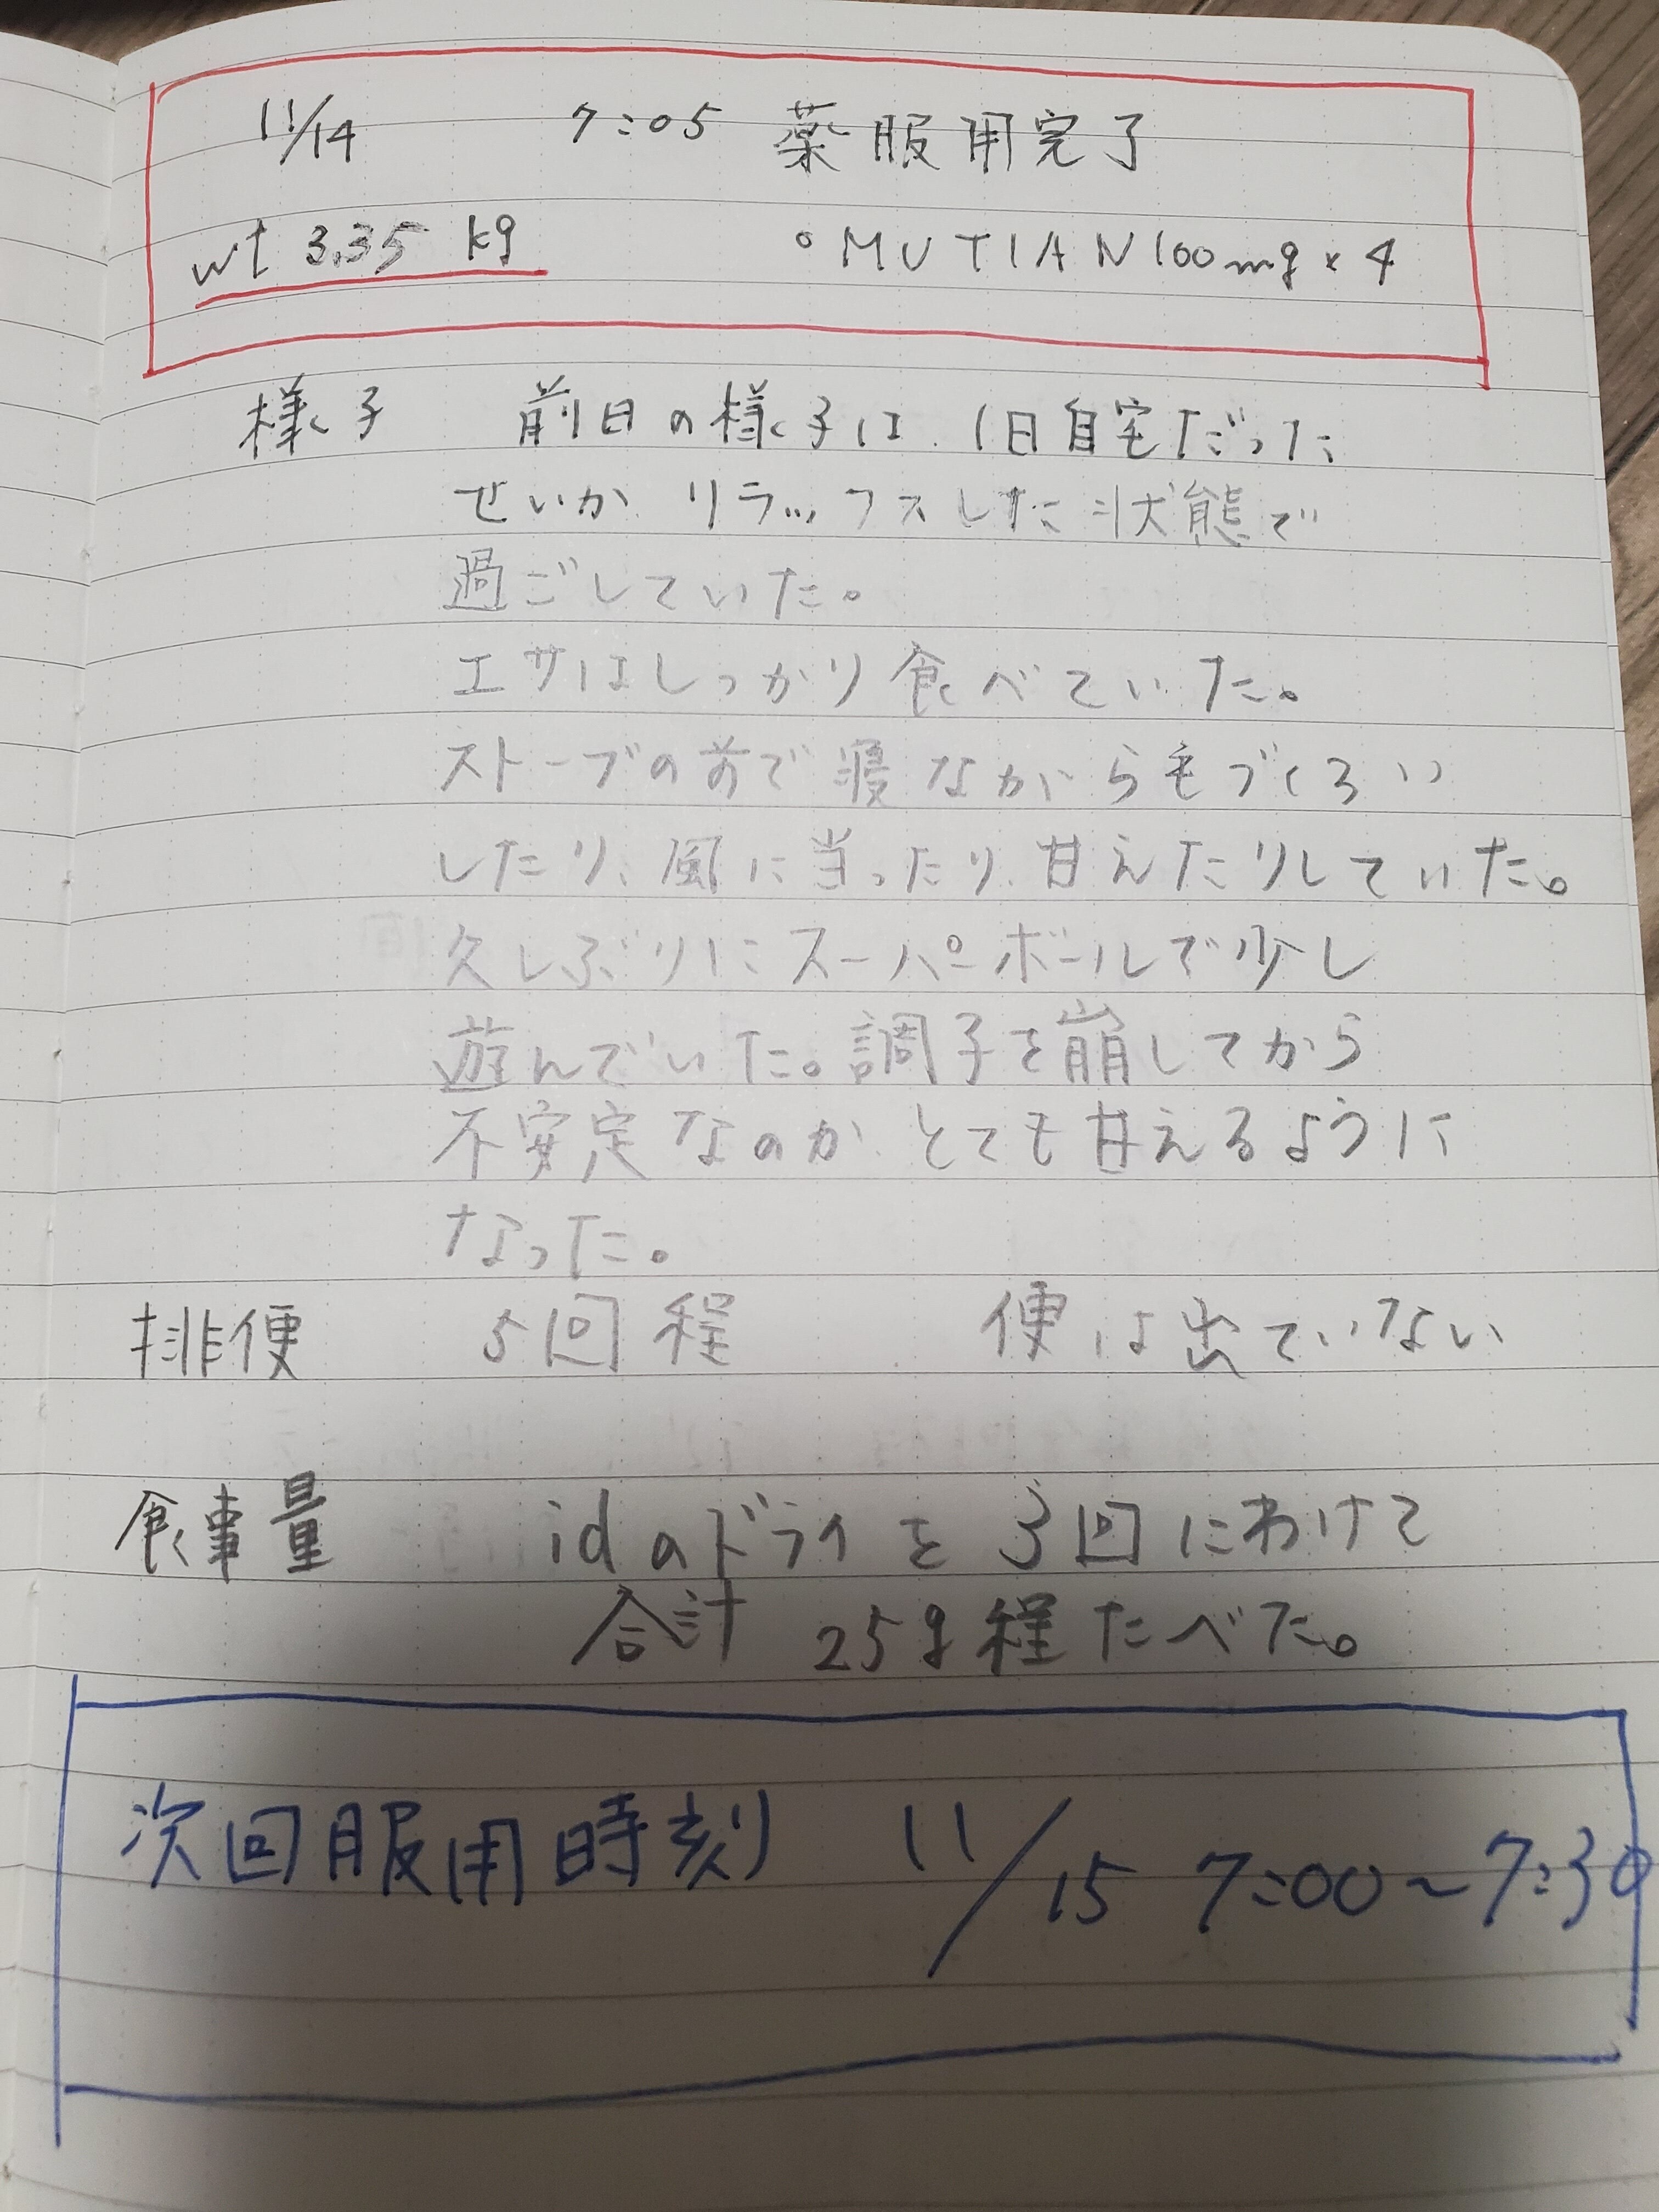 11/14　7:05 薬服用完了
wt 3.35 kg　○MUTIAN100mg×4
様子　前日の様子は、1日自宅だった
せいか リラックスした状態で
過ごしていた。
エサはしっかり食べていた。
ストーブの前で寝ながら毛づくろい
したり、風に当ったり、甘えたりしていた。
久しぶりにスーパーボールで少し
遊んでいた。調子を崩してから
不安定なのか とても甘えるように
なった。
排便　5回程　便は出ていない
食事量　idのドライを3回にわけて
合計 25g程たべた。
次回服用時刻　11/15 7:00～7:30